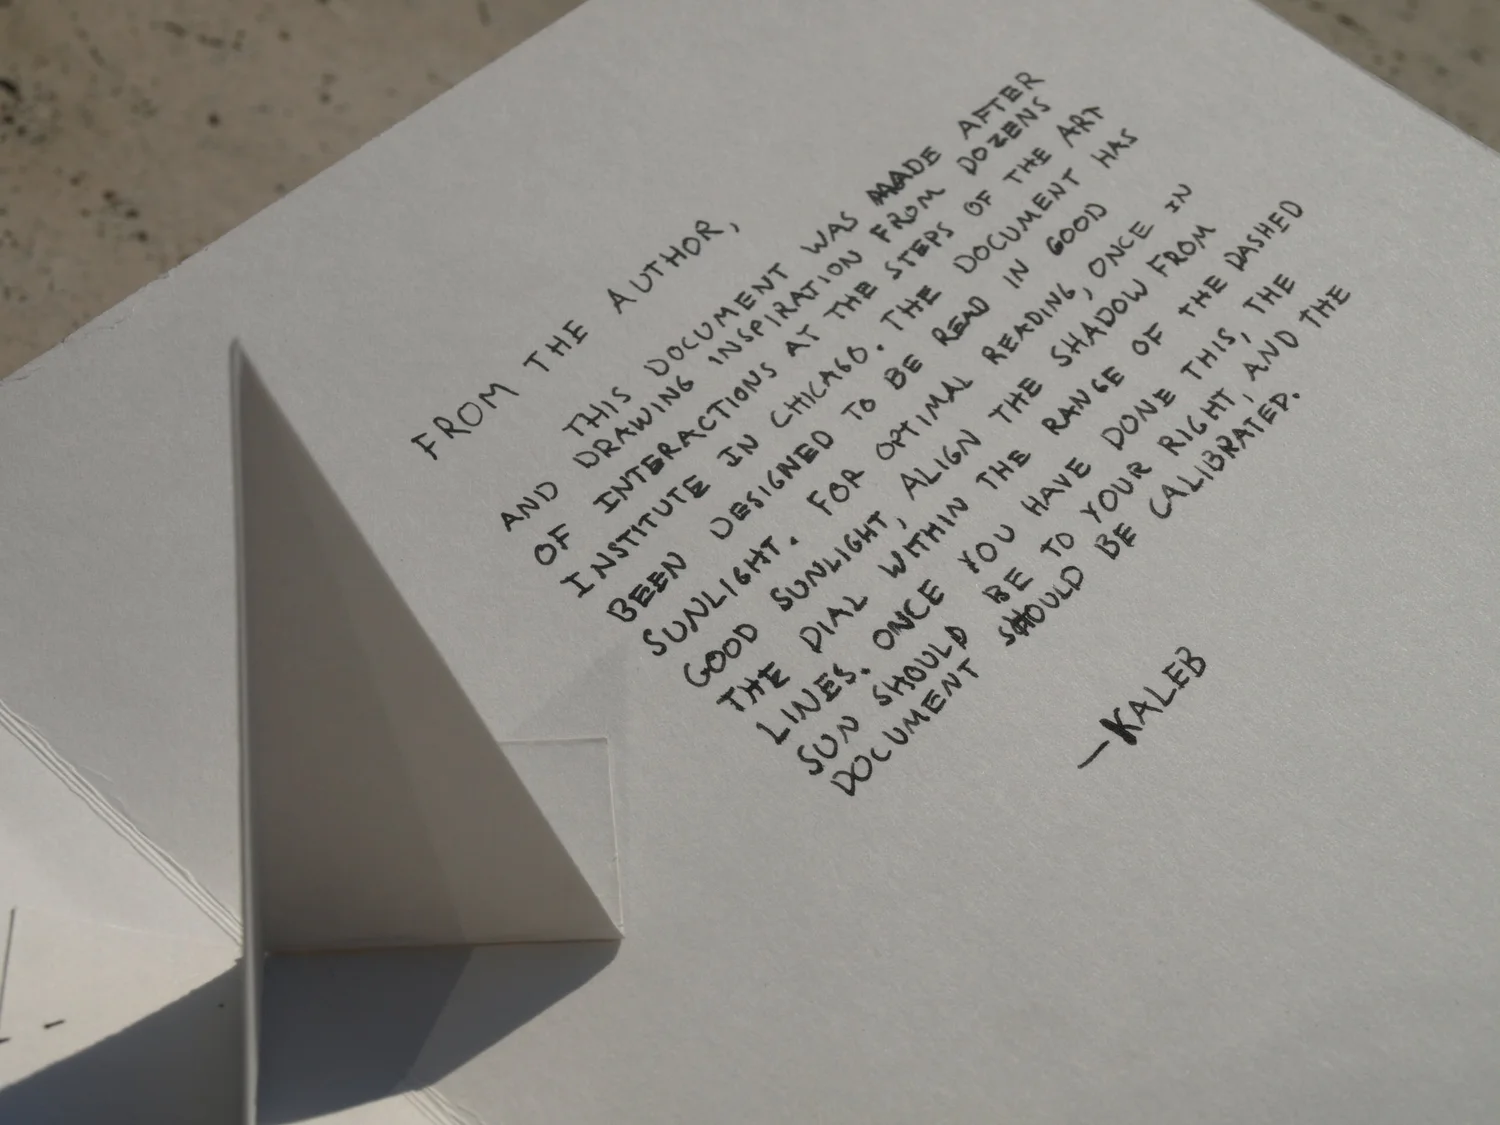 FROM THE AUTHOR,
THIS DOCUMENT WAS MADE AFTER
AND DRAWING INSPIRATION FROM DOZENS
OF INTERACTIONS AT THE STEPS OF THE ART
INSTITUTE IN CHICAGO. THE DOCUMENT HAS
BEEN DESIGNED TO BE READ IN GOOD
SUNLIGHT. FOR OPTIMAL READING, ONCE IN
GOOD SUNLIGHT, ALIGN THE SHADOW FROM
THE DIAL WITHIN THE RANGE OF THE DASHED
LINES. ONCE YOU HAVE DONE THIS, THE
SUN SHOULD BE TO YOUR RIGHT, AND THE
DOCUMENT SHOULD BE CALIBRATED.
—KALEB